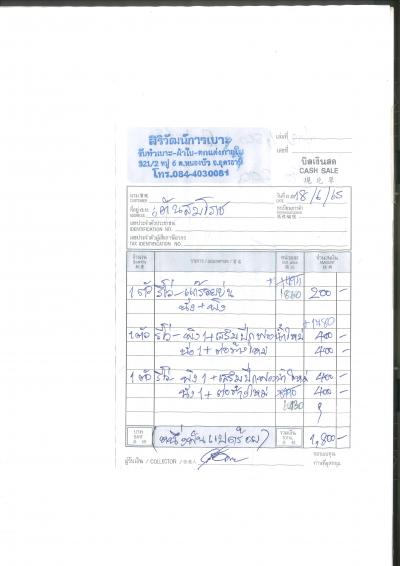 สิริวัฒน์การเบาะ
รับทำเบาะ-ผ้าใบ-ตกแต่งภายใน
321/2 หมู่ 6 ต.หนองบัว อ.อุดรธานี
โทร.084-4030081
เล่มที่
เลขที่
บิลเงินสด
CASH SALE
現兌單
นาม
CUSTOMER
วันที่ 18/6/65
ที่อยู่
ADDRESS
เลขประจำตัวประชาชน
IDENTIFICATION NO.
เลขประจำตัวผู้เสียภาษีอากร
TAX IDENTIFICATION NO.
จำนวน รายการ หน่วยละ จำนวนเงิน
1 ตัว รีโว่ 1860 200 -
นั่ง + พิง
+1480
1 ตัว รีโว่ - พิง 1 + เสริมปีกฟองน้ำใหม่ 400 -
นั่ง 1 + ต่อข้างใหม่ 400 -
1 ตัว รีโว่ - พิง 1 + เสริมปีกฟองน้ำใหม่ 400 -
นั่ง 1 + ต่อข้างใหม่ 400 -
บาท
BAHT
(หนึ่งพันแปดร้อย)
รวมเงิน
TOTAL
1,800 -
ผู้รับเงิน / COLLECTOR
ขอขอบคุณ
ท่านที่อุดหนุน